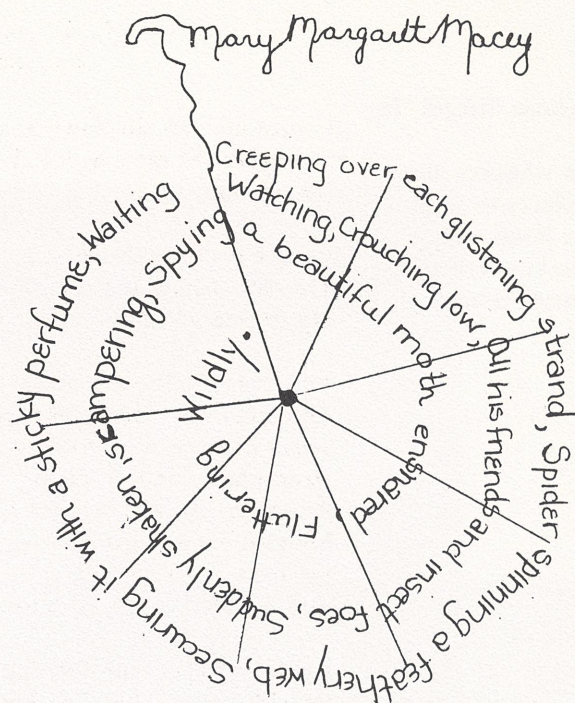 Mary Margaret Macey
Creeping over each glistening strand, Spider spinning a feathery web, Securing it with a sticky perfume, Waiting
Watching, Crouching low, all his friends and insect foes, Suddenly shaken, scampering, Spying
a beautiful moth ensnared, Fluttering Wildly.